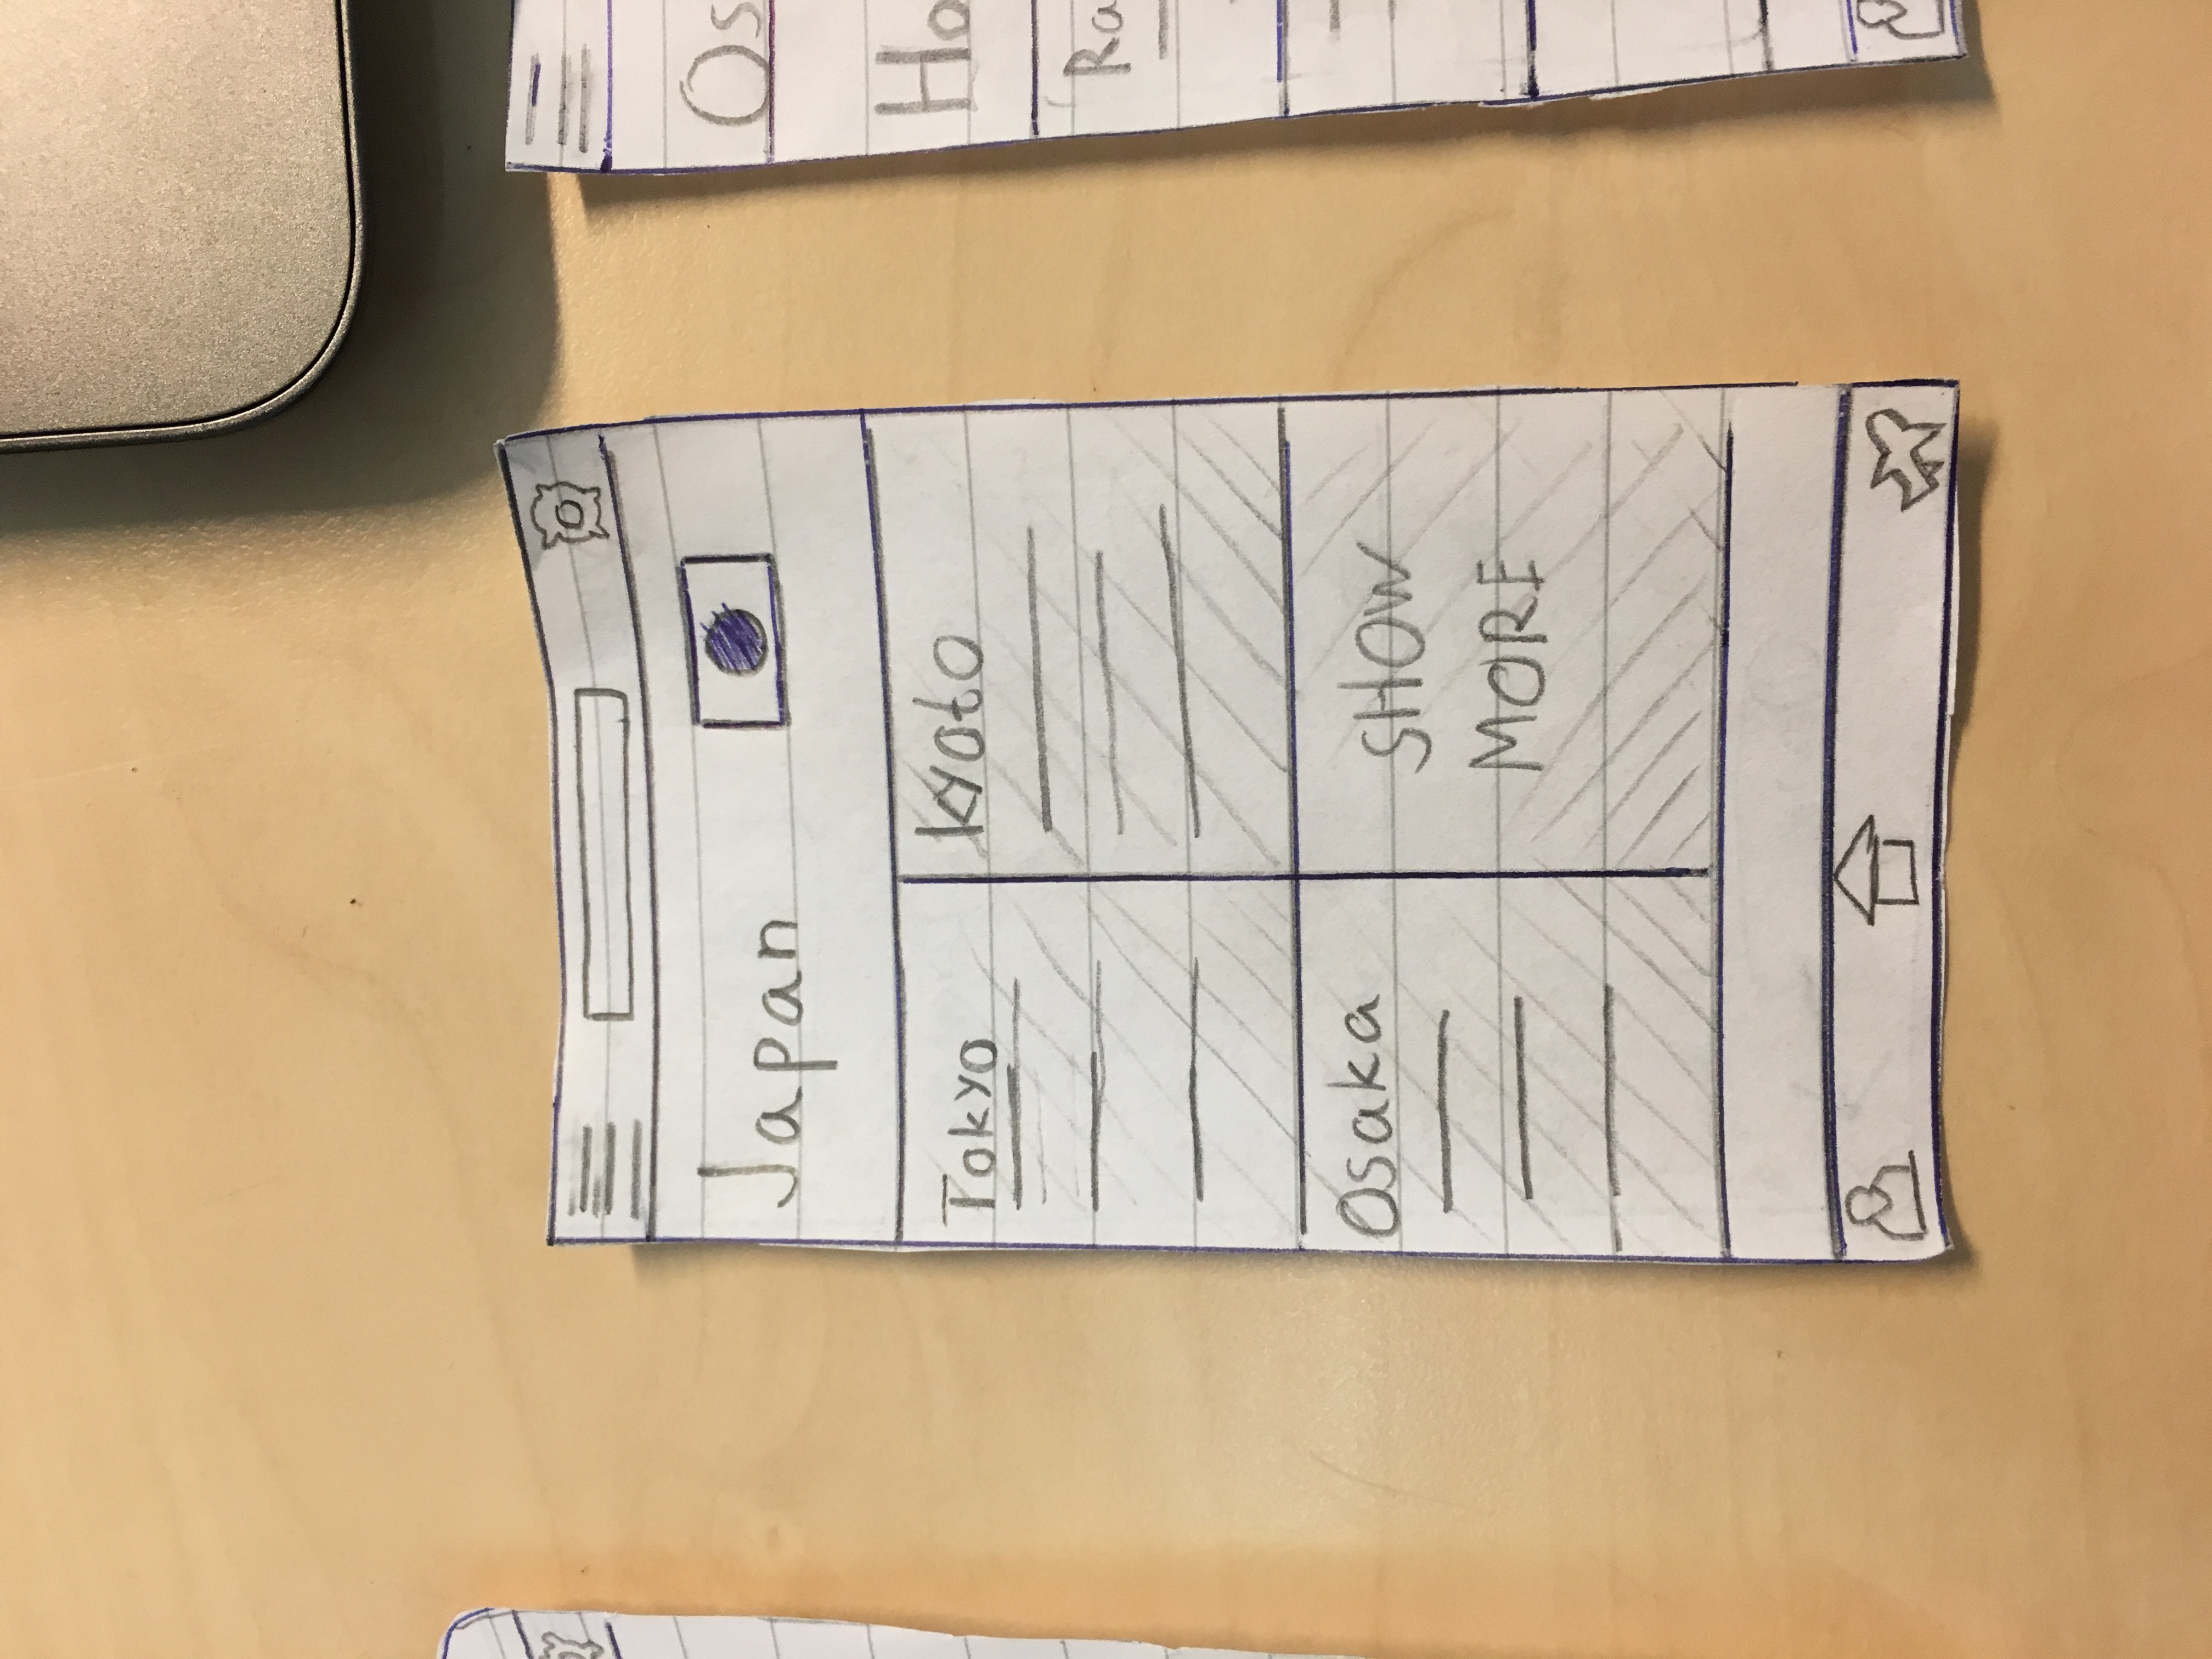 Japan
Tokyo
Kyoto
Osaka
SHOW
MORE
Os
Ho
Ra